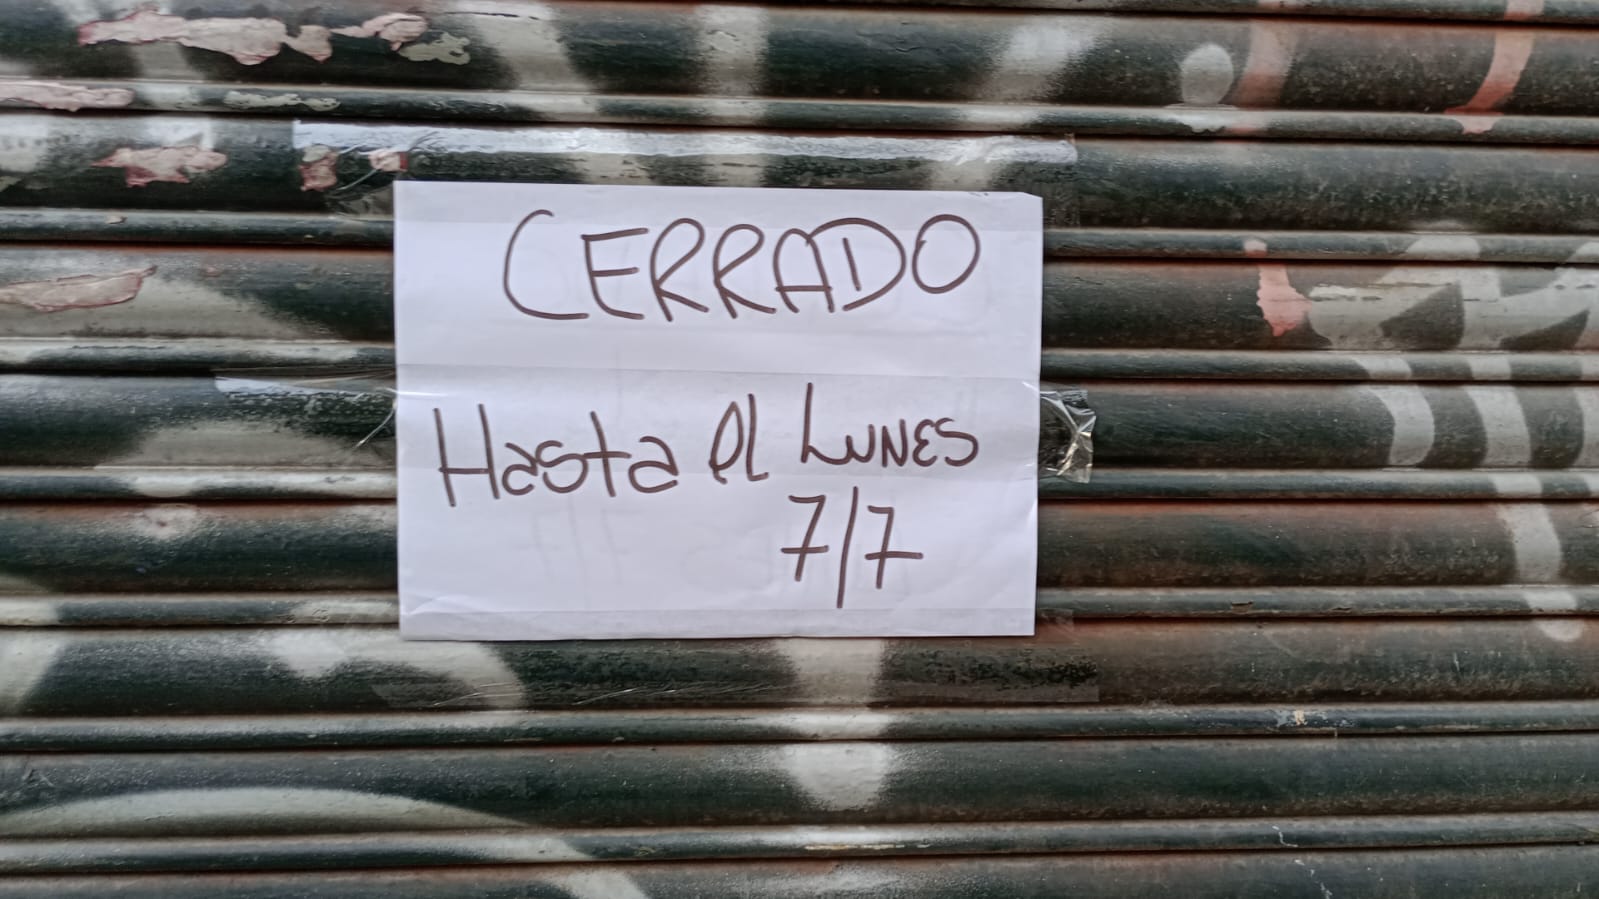 CERRADO
Hasta el LUNES
7/7